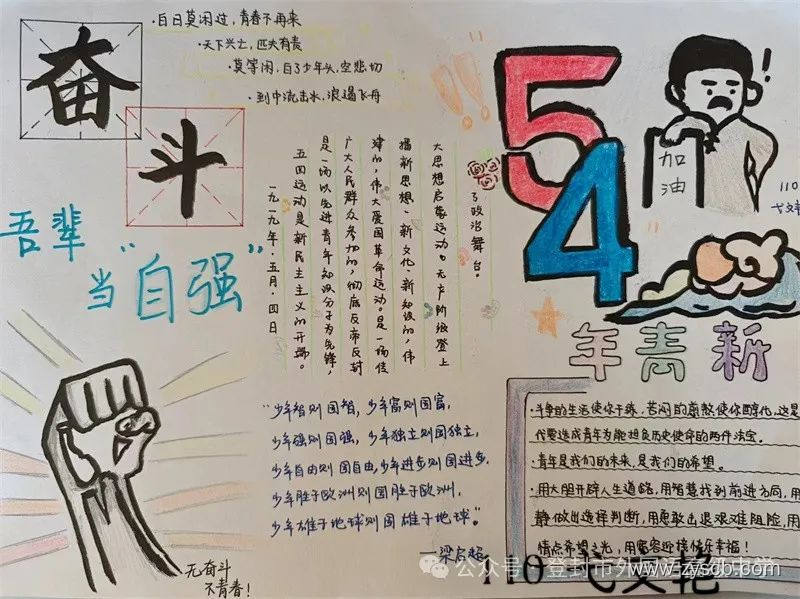 奋
斗
·白日莫闲过，青春不再来
·天下兴亡，匹夫有责
·莫等闲，白了少年头，空悲切
·到中流击水，浪遏飞舟
54
!
加
油
110
吾辈
当“自强”
一九一九年·五月·四日
五四运动是新民主主义的开端。
是一场以先进青年知识分子为先锋，
广大人民群众参加的，彻底反帝反封
建的，伟大爱国革命运动。是一场传
播新思想、新文化、新知识的，伟
大思想启蒙运动。无产阶级登上
了政治舞台。
新青年
“少年智则国智，少年富则国富，
少年强则国强，少年独立则国独立，
少年自由则国自由，少年进步则国进步，
少年胜于欧洲则国胜于欧洲，
少年雄于地球则国雄于地球。”
—梁启超
·斗争的生活使你干练，苦闷的煎熬使你醇化，这是
代要造成青年为能担负历史使命的两件法宝。
·青年是我们的未来，是我们的希望。
·用大胆开辟人生道路，用智慧找到前进方向，用
静做出选择判断，用勇敢击退艰难阻险，用
情点希望之光，用宽容迎接快乐幸福！
无奋斗
不青春！
公众号·登封市外国语
110 弋文艳
www.zyscb.com